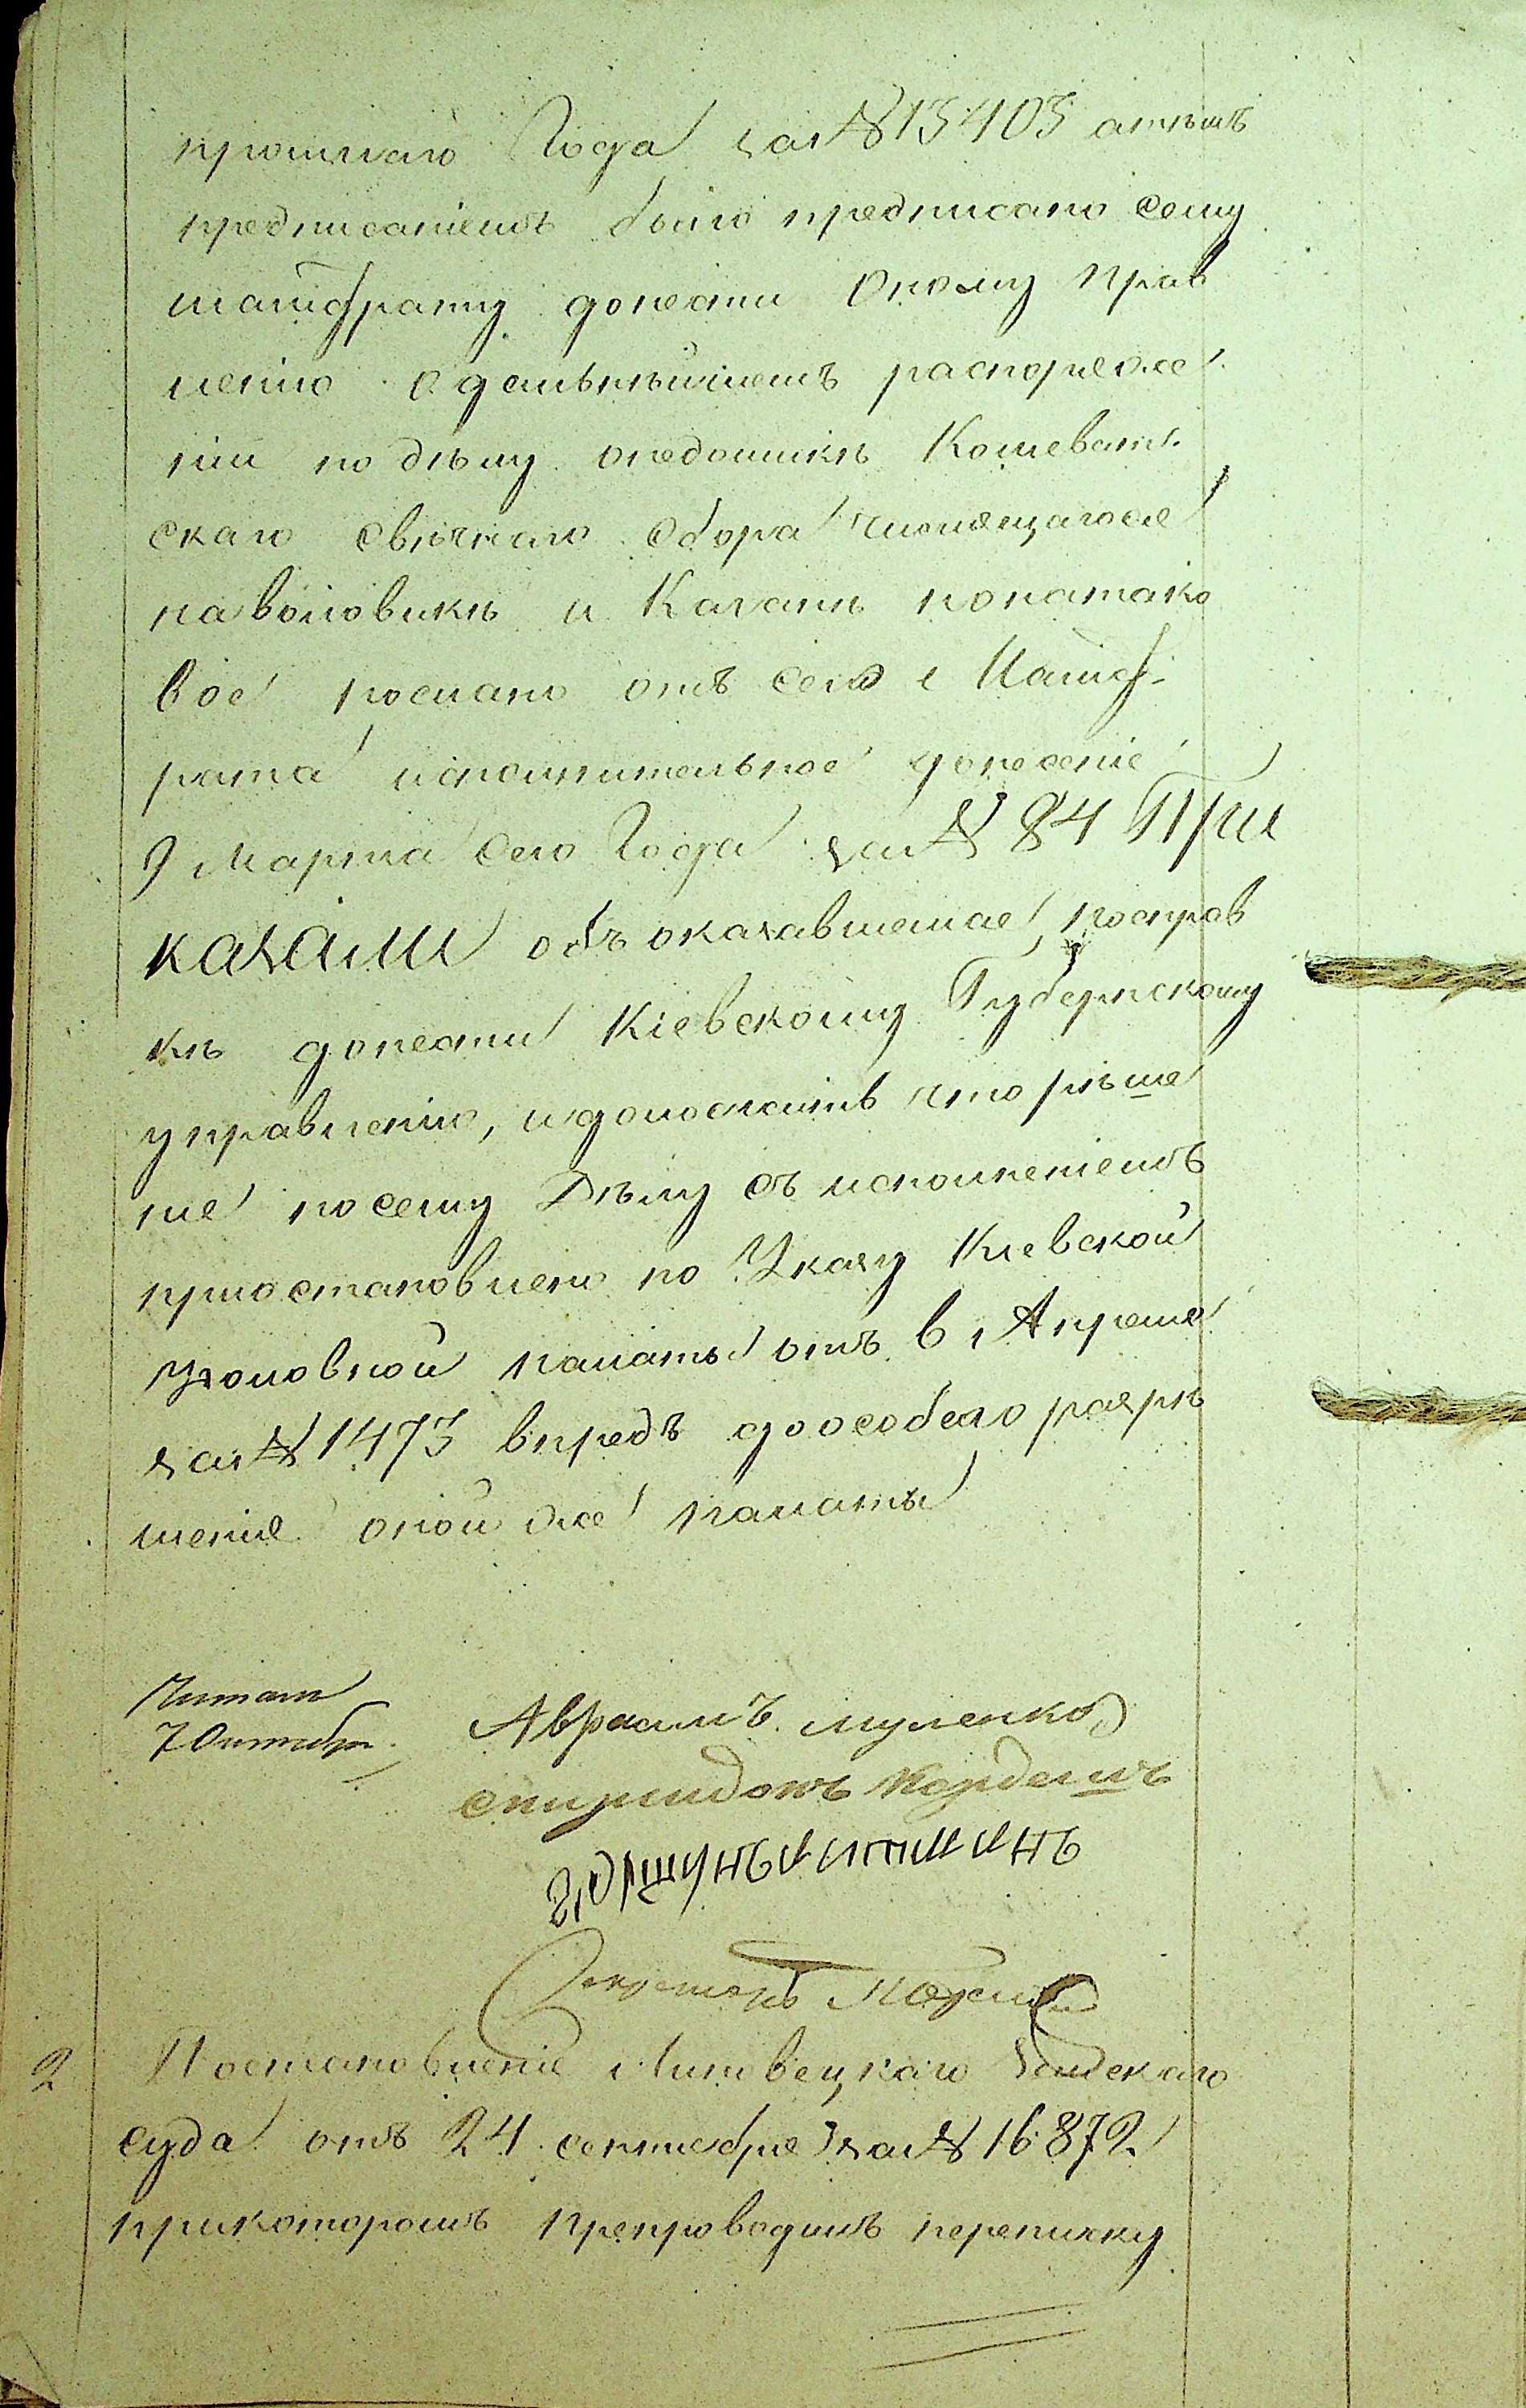 прошлаго Года за № 13403 а тѣмъ
предписаніемъ было предписано сему
магистрату донести Оному Прав
ленію о дальнѣйшемъ распоряже
ніи по дѣлу о недоимкѣ Кошеват.
скаго свѣчнаго Сбора числящагося
на войовикѣ и Каганѣ но на тако
вое послано отъ сего Магист
рата исполнительное донесеніе
9 Марта сего Года за № 84 При
казали объ оказавшемся по справ
кѣ донести Кіевскому Губернскому
управленію, и доложить что рѣше
ніе по сему Дѣлу съ исполненіемъ
пріостановлено по Указу Кіевской
Уголовной палаты отъ 6 Апреля
за № 1473 впредь до особаго разрѣ
шенія оной же палаты
Читалъ
7 Октября
Авраамъ
Спиридонъ
Секретарь
2 Постановленіе Липовецкаго Земскаго
суда отъ 24 сентября за № 16872
при которомъ препроводилъ переписку